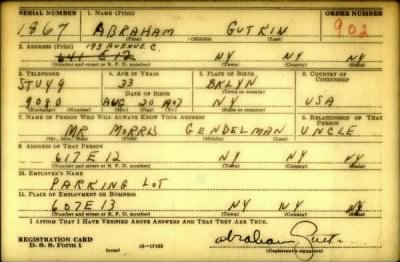 SERIAL NUMBER 1. NAME (Print) ORDER NUMBER
1867 ABRAHAM GUTKIN 902
(First) (Middle) (Last)
2. ADDRESS (Print)
193 AVENUE C.
641 E 12 NY NY NY
(Number and street or R. F. D. number) (Town) (County) (State)
3. TELEPHONE 4. AGE IN YEARS 5. PLACE OF BIRTH 6. COUNTRY OF CITIZENSHIP
STUY9 33 BKLYN
DATE OF BIRTH
9080 AUG 20 NY USA
7. NAME OF PERSON WHO WILL ALWAYS KNOW YOUR ADDRESS 8. RELATIONSHIP OF THAT PERSON
MR MORRIS GENDELMAN UNCLE
(Mr., Mrs., Miss) (First) (Middle) (Last)
9. ADDRESS OF THAT PERSON
617 E 12 NY NY NY
(Number and street or R. F. D. number) (Town) (County) (State)
10. EMPLOYER'S NAME
PARKING LOT
11. PLACE OF EMPLOYMENT OR BUSINESS
607 E 13 NY NY NY
(Number and street or R. F. D. number) (Town) (County) (State)
I AFFIRM THAT I HAVE VERIFIED ABOVE ANSWERS AND THAT THEY ARE TRUE.
REGISTRATION CARD
D. S. S. Form 1 (over) 16-17105 (Registrant's signature)
Abraham